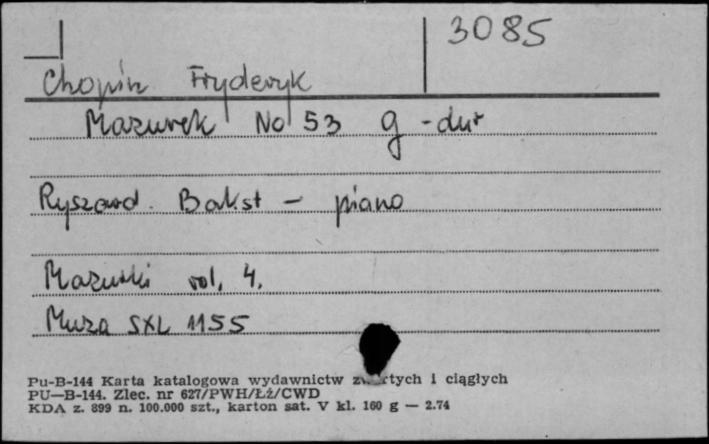 3085
Chopin Fryderyk
Mazurek No 53 g-dur
Ryszard Bakst – piano
Mazurki vol. 4.
Muza SXL 1155
Pu-B-144 Karta katalogowa wydawnictw i ciągłych
PU—B-144. Zlec. nr 627/PWH/Łż/CWD
KDA z. 899 n. 100.000 szt., karton sat. V kl. 160 g — 2.74